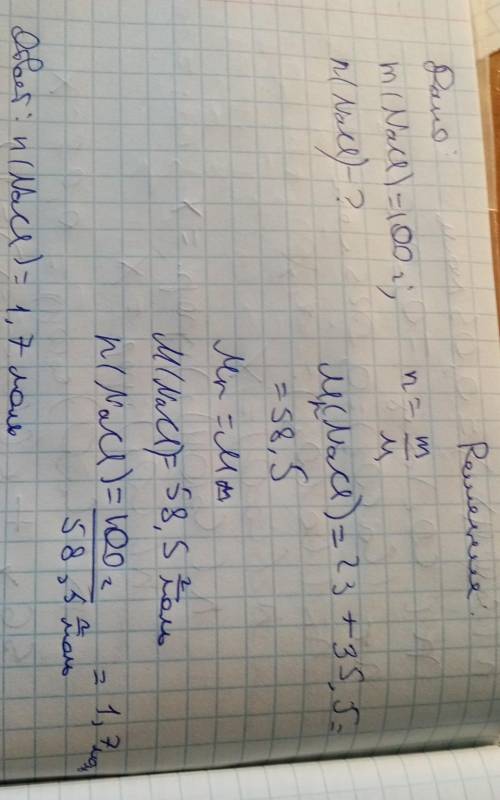 Дано:
m(NaCl)=100г;
n(NaCl)-?
Решение:
n = m/M
Mr(NaCl)=23+35,5=
=58,5
Mr = M
M(NaCl)=58,5 г/моль
n(NaCl)=100г/58,5 г/моль = 1,7 моль
Ответ: n(NaCl)=1,7 моль